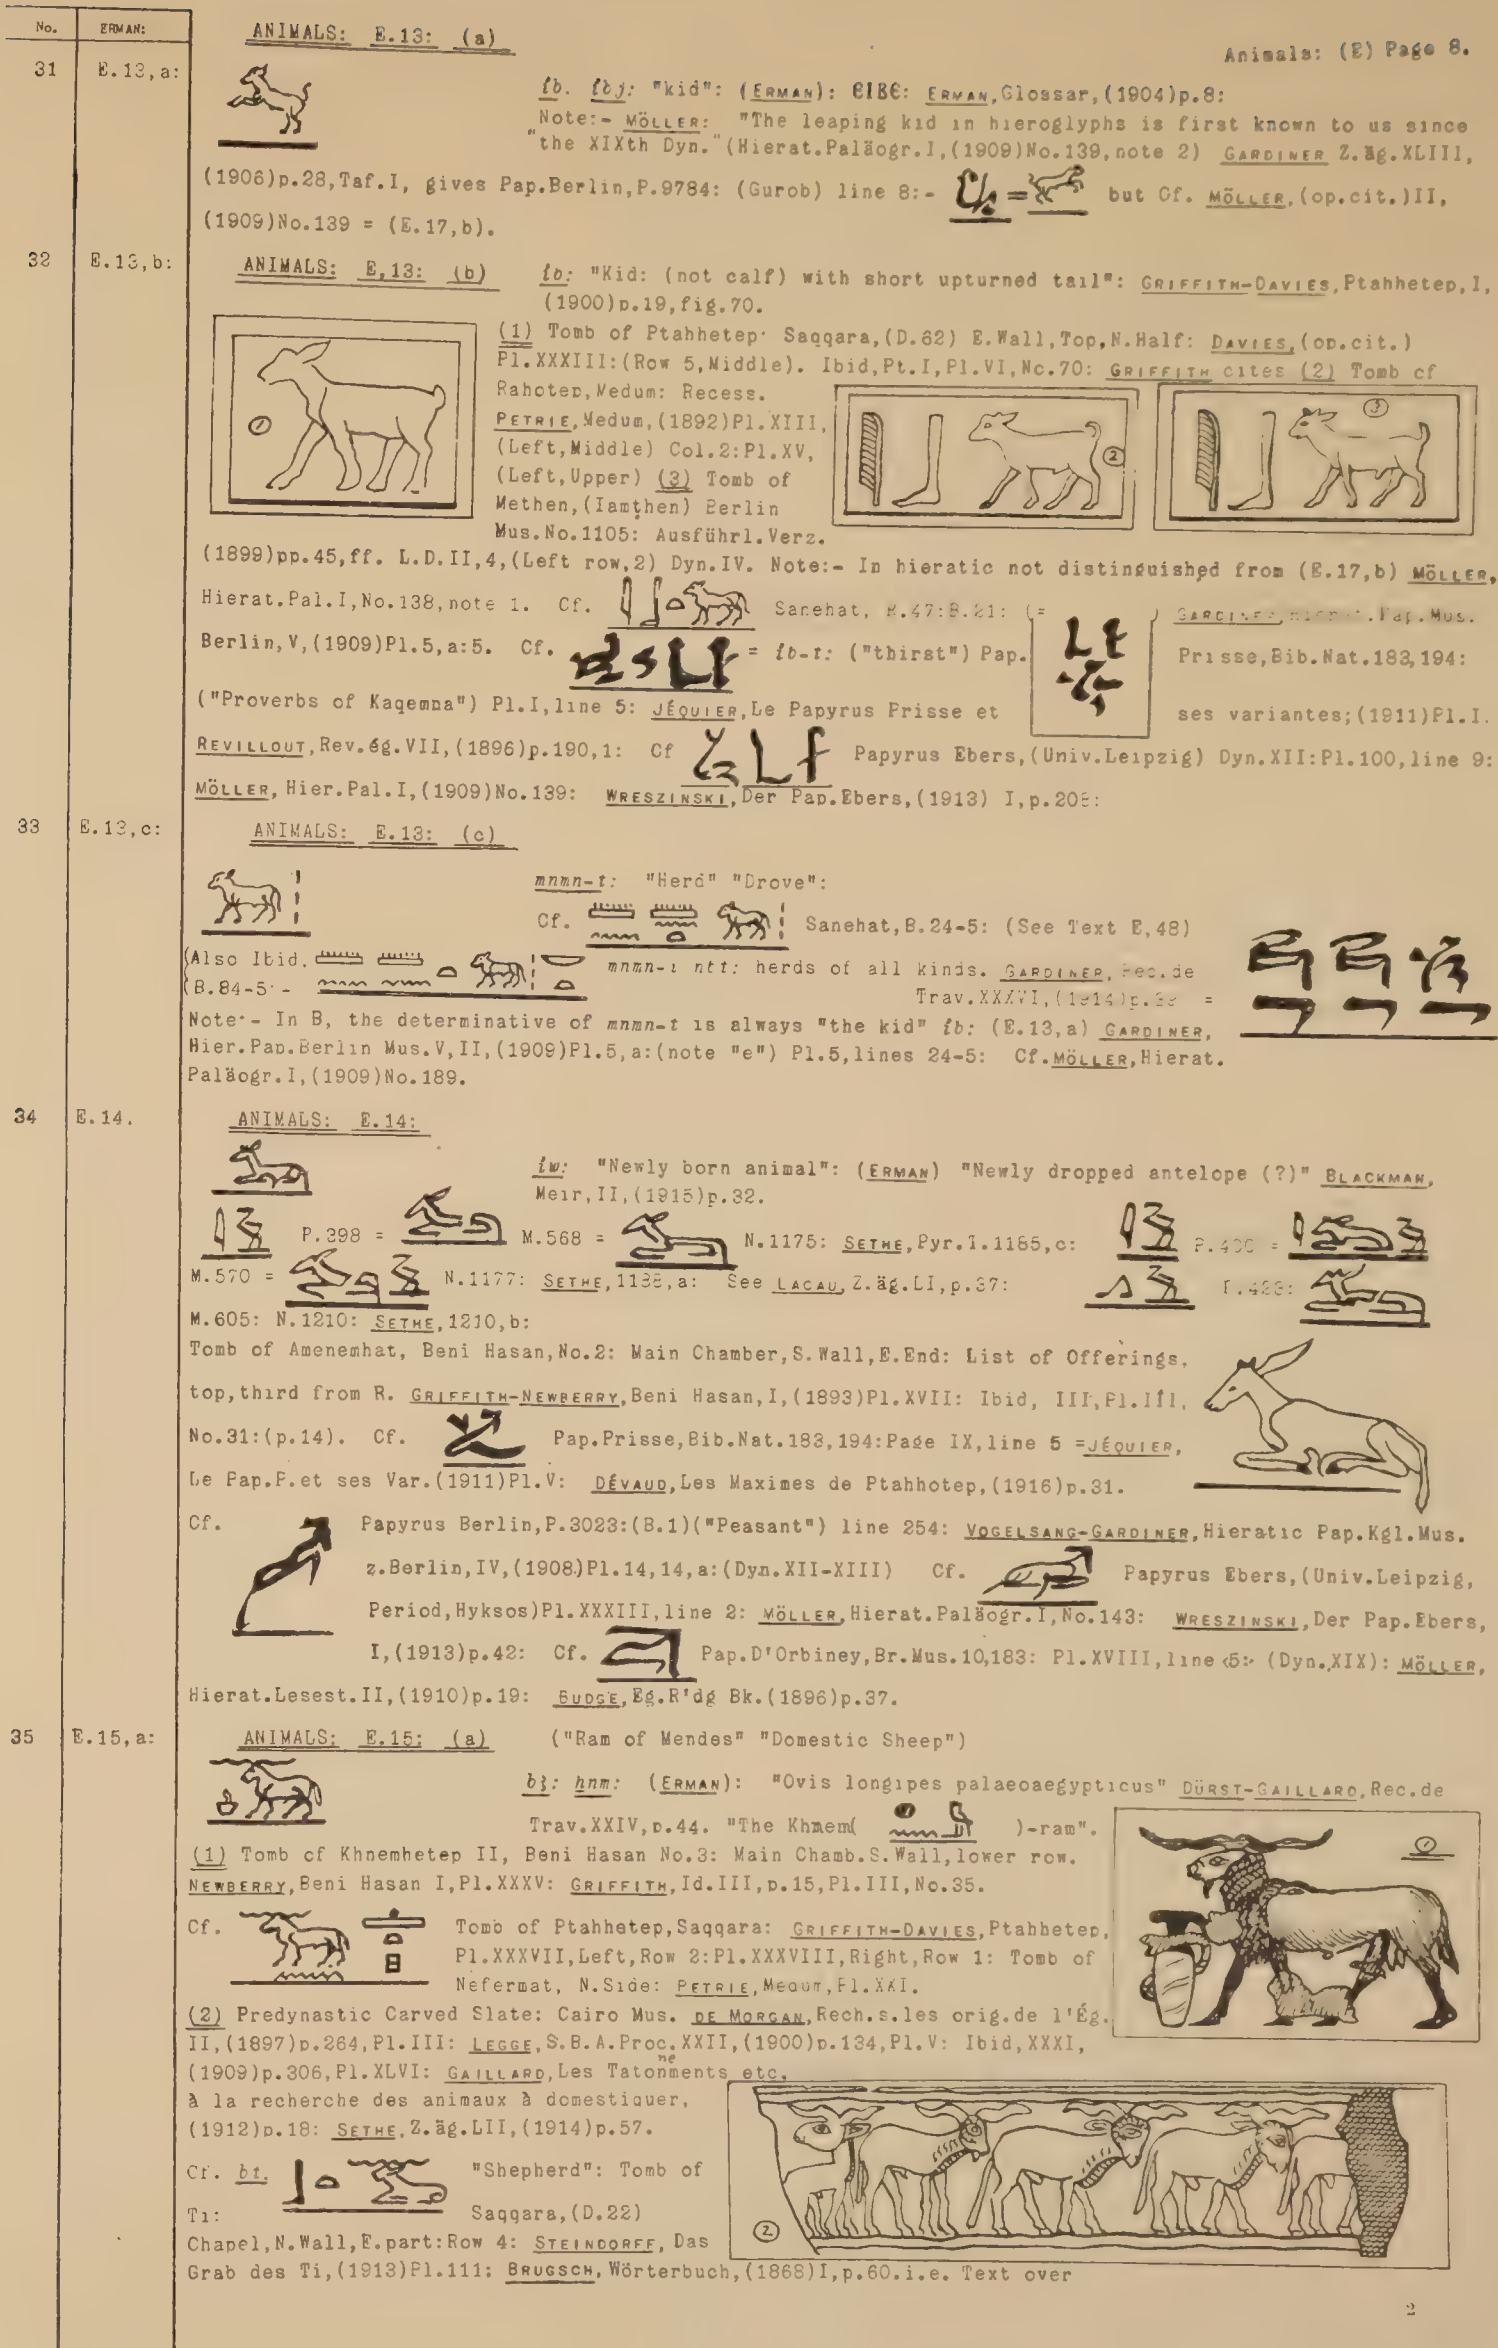 No. ERMAN:
ANIMALS: E.13: (a)
Animals: (E) Page 8.
31 E.13,a:
ỉb. ỉbj: "kid": (ERMAN): ⲉⲓⲃⲉ: ERMAN,Glossar,(1904)p.8:
Note:- MÖLLER: "The leaping kid in hieroglyphs is first known to us since
"the XIXth Dyn."(Hierat.Paläogr.I,(1909)No.139,note 2) GARDINER Z.äg.XLIII,
(1906)p.28,Taf.I, gives Pap.Berlin,P.9784: (Gurob) line 8:- = but Cf. MÖLLER,(op.cit.)II,
(1909)No.139 = (E.17,b).
32 E.13,b:
ANIMALS: E,13: (b) ỉb: "Kid: (not calf) with short upturned tail": GRIFFITH-DAVIES,Ptahhetep,I,
(1900)p.19,fig.70.
(1) Tomb of Ptahhetep· Saqqara,(D.62) E.Wall,Top,N.Half: DAVIES,(op.cit.)
Pl.XXXIII:(Row 5,Middle). Ibid,Pt.I,Pl.VI,No.70: GRIFFITH cites (2) Tomb of
Rahotep,Medum: Recess.
PETRIE,Medum,(1892)Pl.XIII,
(Left,Middle) Col.2:Pl.XV,
(Left,Upper) (3) Tomb of
Methen,(Iamṭhen) Berlin
Mus.No.1105: Ausführl.Verz.
1
2
3
(1899)pp.45,ff. L.D.II,4,(Left row,2) Dyn.IV. Note:- In hieratic not distinguished from (E.17,b) MÖLLER,
Hierat.Pal.I,No.138,note 1. Cf. Sanehat, R.47:B.21: (= ) GARDINER, .Pap.Mus.
Berlin,V,(1909)Pl.5,a:5. Cf. = ỉb-t: ("thirst") Pap. Prisse,Bib.Nat.183,194:
("Proverbs of Kaqemna") Pl.I,line 5: JÉQUIER,Le Papyrus Prisse et ses variantes;(1911)Pl.I.
REVILLOUT,Rev.ég.VII,(1896)p.190,1: Cf Papyrus Ebers,(Univ.Leipzig) Dyn.XII:Pl.100,line 9:
MÖLLER,Hier.Pal.I,(1909)No.139: WRESZINSKI,Der Pap.Ebers,(1913) I,p.208:
33 E.13,c:
ANIMALS: E.13: (c)
mnmn-t: "Herd" "Drove":
Cf. Sanehat,B.24-5: (See Text E,48)
(Also Ibid. mnmn-t nbt: herds of all kinds. GARDINER, Rec.de
(B.84-5·- Trav.XXXVI,(1914)p. =
Note·- In B, the determinative of mnmn-t is always "the kid" ỉb: (E.13,a) GARDINER,
Hier.Pap.Berlin Mus.V,II,(1909)Pl.5,a:(note "e") Pl.5,lines 24-5: Cf.MÖLLER,Hierat.
Paläogr.I,(1909)No.189.
34 E.14.
ANIMALS: E.14:
ỉw: "Newly born animal": (ERMAN) "Newly dropped antelope (?)" BLACKMAN,
Meir,II,(1915)p.32.
P.398 = M.568 = N.1175: SETHE,Pyr.I.1185,c: P.400 =
M.570 = N.1177: SETHE,1188,a: See LACAU,Z.äg.LI,p.37: P.423:
M.605: N.1210: SETHE,1210,b:
Tomb of Amenemhat, Beni Hasan,No.2: Main Chamber,S.Wall,E.End: List of Offerings,
top,third from R. GRIFFITH-NEWBERRY,Beni Hasan,I,(1893)Pl.XVII: Ibid, III,Pl.III.
No.31:(p.14). Cf. Pap.Prisse,Bib.Nat.183,194:Page IX,line 5 =JÉQUIER,
Le Pap.P.et ses Var.(1911)Pl.V: DÉVAUD,Les Maximes de Ptahhotep,(1916)p.31.
Cf. Papyrus Berlin,P.3023:(B.1)("Peasant") line 254: VOGELSANG-GARDINER,Hieratic Pap.Kgl.Mus.
z.Berlin,IV,(1908)Pl.14,14,a:(Dyn.XII-XIII) Cf. Papyrus Ebers,(Univ.Leipzig,
Period,Hyksos)Pl.XXXIII,line 2: MÖLLER,Hierat.Paläogr.I,No.143: WRESZINSKI,Der Pap.Ebers,
I,(1913)p.42: Cf. Pap.D'Orbiney,Br.Mus.10,183: Pl.XVIII,line 5: (Dyn.XIX): MÖLLER,
Hierat.Lesest.II,(1910)p.19: BUDGE,Eg.R'dg Bk.(1896)p.37.
35 E.15,a:
ANIMALS: E.15: (a) ("Ram of Mendes" "Domestic Sheep")
bꜣ: ẖnm: (ERMAN): "Ovis longipes palaeoaegypticus" DÜRST-GAILLARD,Rec.de
Trav.XXIV,p.44. "The Khnem( )-ram".
(1) Tomb of Khnemhetep II, Beni Hasan No.3: Main Chamb.S.Wall,lower row.
NEWBERRY,Beni Hasan I,Pl.XXXV: GRIFFITH,Id.III,p.15,Pl.III,No.35.
Cf. Tomb of Ptahhetep,Saqqara: GRIFFITH-DAVIES,Ptahhetep,
Pl.XXXVII,Left,Row 2:Pl.XXXVIII,Right,Row 1: Tomb of
Nefermat, N.Side: PETRIE,Medum,Pl.XXI.
1
(2) Predynastic Carved Slate: Cairo Mus. DE MORGAN,Rech.s.les orig.de l'Ég.
II,(1897)p.264,Pl.III: LEGGE,S.B.A.Proc.XXII,(1900)p.134,Pl.V: Ibid,XXXI,
(1909)p.306,Pl.XLVI: GAILLARD,Les Tatonnements etc.
à la recherche des animaux à domestiquer,
(1912)p.18: SETHE,Z.äg.LII,(1914)p.57.
Cf. bt. "Shepherd": Tomb of
Ti: Saqqara,(D.22)
Chapel,N.Wall,E.part:Row 4: STEINDORFF, Das
Grab des Ti,(1913)Pl.111: BRUGSCH,Wörterbuch,(1868)I,p.60.i.e. Text over
2
2